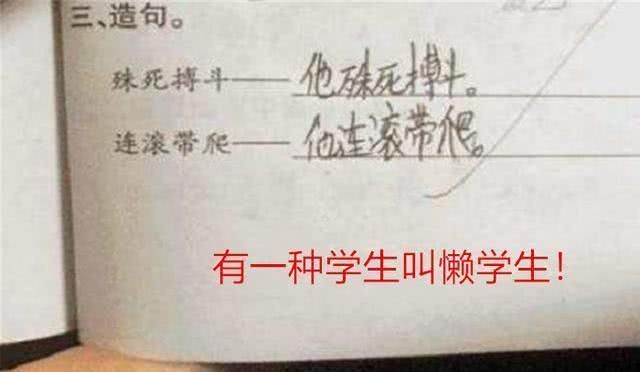 三、造句。
殊死搏斗——他殊死搏斗。
连滚带爬——他连滚带爬。
有一种学生叫懒学生！